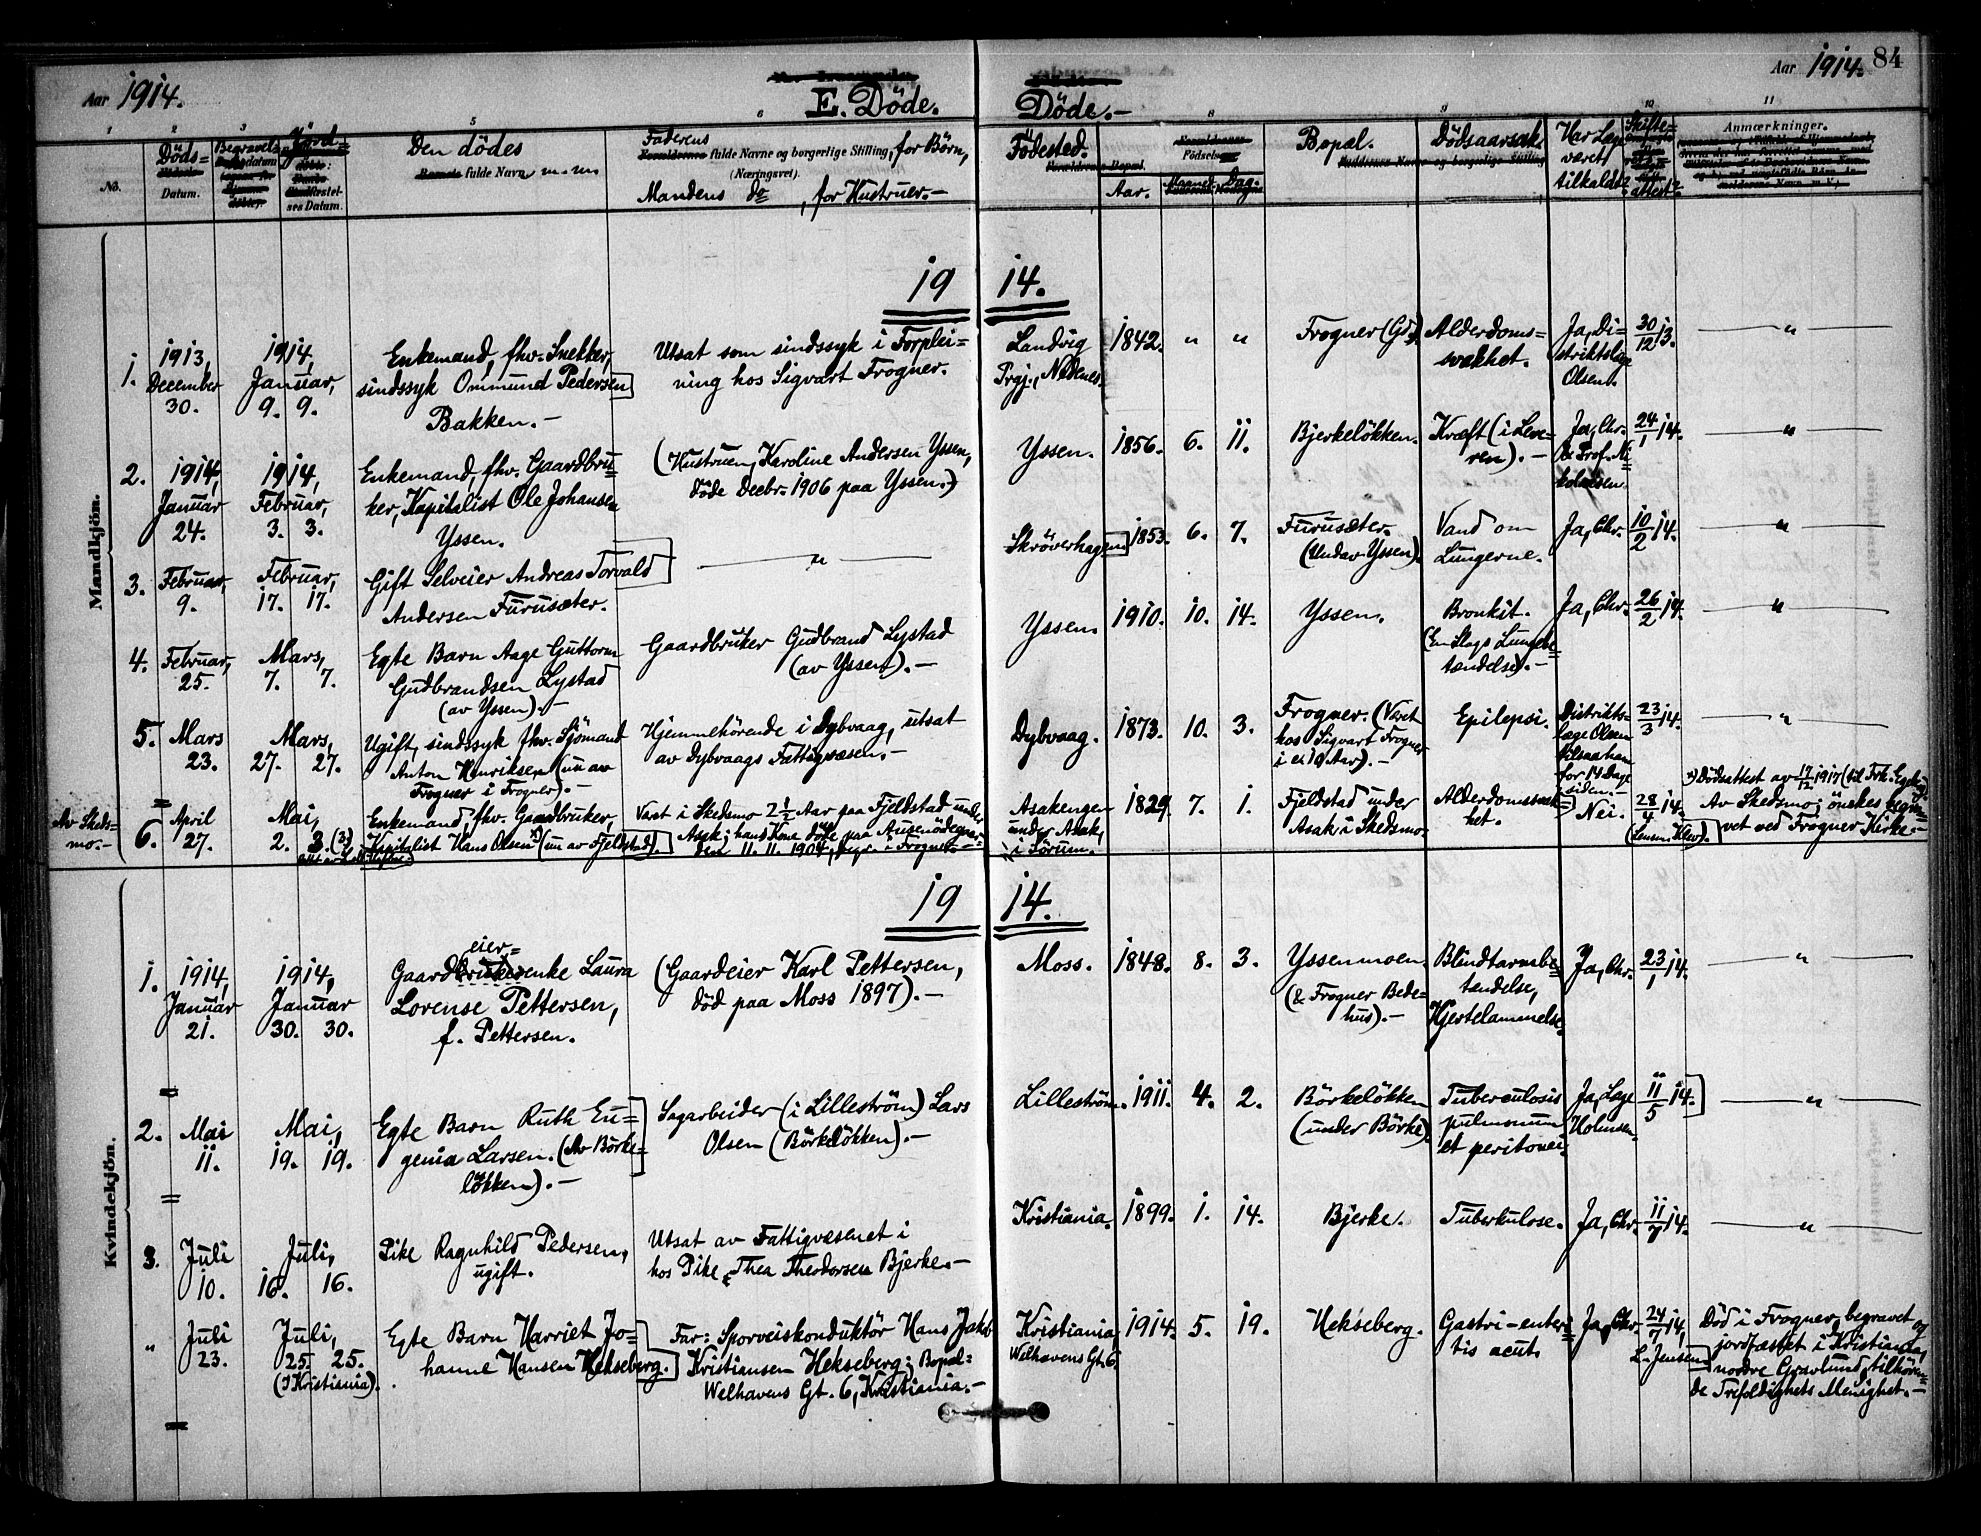 Aar 1914.
E. Döde.
Döde.-
Aar 1914. 84
1 2 3 5 6 8 9 10 11
No.
Döds= Datum.
Begravel-
Jord=
ses Datum.
Den dödes
fulde Navn m.m.
Faderens
fulde Navne og borgerlige Stilling, for Börn,
(Næringsvei).
Mandens do, for Hustruer.-
Födested.
Födsels
Aar. Maaned. Dag.
Bopæl.
Dödsaarsak
Har Læge
været
tilkaldt?
Skifte=
attest?
Anmærkninger.
Mandkjön.
19 14.
1.
1913,
December
30.
1914,
Januar,
9. 9.
Enkemand, fhv. Snekker,
sindssyk Ommund Pedersen
Bakken.-
Utsat som sindssyk i Forplei=
ning hos Sigvart Frogner.
Landvig
Prgj., Nedenes.
1842. " "
Frogner (Gd.)
Alderdoms=
svakhet.
Ja, Di=
striktslæge
Olsen.
30/12 13.
"
2.
1914,
Januar
24.
1914,
Februar,
3. 3.
Enkemand, fhv. Gaardbru=
ker, Kapitalist Ole Johansen
Yssen.
(Hustruen, Karoline Andersen Yssen,
döde Decbr. 1906 paa Yssen.)
Yssen.
1856. 6. 11.
Bjerkelökken.
Kræft (i Leve=
ren).-
Ja, Chr.
& Prof. Ni-
kolaisen
24/1 14.
"
3.
Februar,
9.
Februar,
17. 17.
Gift Selveier Andreas Torvald
Andersen Furusæter.
"
Skröverhagen
1853. 6. 7.
Furusæter.
(Undav Yssen).
Vand om
Lungerne.
Ja, Chr.
10/2 14.
"
4.
Februar,
25.
Mars,
7. 7.
Egte Barn Aage Guttorm
Gudbrandsen Lystad
(av Yssen).-
Gaardbruker Gudbrand Lystad
(av Yssen).-
Yssen.
1910. 10. 14.
Yssen.
Bronkit.
(En Slags Lungebe=
tændelse).-
Ja, Chr.
26/2 14.
"
5.
Mars
23.
Mars,
27. 27.
Ugift, sindssyk fhv. Sjömand
Anton Henriksen (nu av
Frogner i Frogner).-
Hjemmehörende i Dybvaag, utsat
av Dybvaags Fattigvæsen.-
Dybvaag.
1873. 10. 3.
Frogner. (Været
hos Sigvart Frogner
i ei 10 Aar).-
Epilepsi.
Distrikts=
læge Olsen
tilsaa ham
for 14 Dage
siden.-
23/3 14.
"
Av Skeds=
mo.-
6.
April
27.
Mai,
2. 3. (3)
Enkemand, fhv. Gaardbruker,
Kapitalist Hans Olsen x) (nu av Fjeldstad).
Vært i Skedsmo 2 1/2 Aar paa Fjeldstad under
Asak; hans Kone döde paa Ausenödegaar-
den 11. 11. 1904, begr. i Frogner.-
Asakengen
under Asak,
i Sörum.
1829. 7. 1.
Fjeldstad under
Asak i Skedsmo.
Alderdomssvak=
het.
Nei.
28/4 14.
x) Dödsattest av 17/12 1917 (til Frk.
Av Skedsmo; önskes begra=
vet ved Frogner Kirke.-
Kvindekjön.
19 14.
1.
1914,
Januar
21.
1914,
Januar
30. 30.
eier=
Gaardbrukerenke Laura
Lorense Pettersen,
f. Pettersen.
(Gaardeier Karl Pettersen,
död paa Moss 1897).-
Moss.
1848. 8. 3.
Yssenmoen
(& Frogner Bede=
hus).-
Blindtarmsbe=
tændelse,
Hjertelammelse.
Ja, Chr.
23/1 14.
"
2.
Mai
11.
Mai,
19. 19.
Egte Barn Ruth Eu=
genia Larsen. (Av Börke=
lökken).-
Sagarbeider (i Lilleström) Lars
Olsen (Börkelökken).-
Lilleström.
1911. 4. 2.
Börkelökken
(under Börke).
Tuberculosis
pulmonum
et peritonei.
Ja, Læge
Holmsen.
11/5 14.
"
3.
Juli
10.
Juli,
16. 16.
Pike Ragnhild Pedersen,
ugift.
Utsat av Fattigvæsenet i
hos Pike Thea Theodorsen Bjerke.-
Kristiania.
1899. 1. 14.
Bjerke.
Tuberkulose.
Ja, Chr.
11/7 14.
"
"
Juli
23.
Juli,
25. 25.
(I Kristiania).
Egte Barn Harriet Jo=
hanne Hansen Hekseberg.
Far: Sporveiskonduktör Hans Jakob
Kristiansen Hekseberg; Bopæl=
Welhavens Gt. 6, Kristiania.-
Kristiania,
Welhavens Gt. 6.
1914. 5. 19.
Hekseberg.
Gastri-enteri=
tis acut.
Ja, Chr.
24/7 14,
L. Jensen
Död i Frogner, begravet og
jordfæstet i Kristiania,
nordre Gravlund, tilhören=
de Trefoldighets Menighet.-